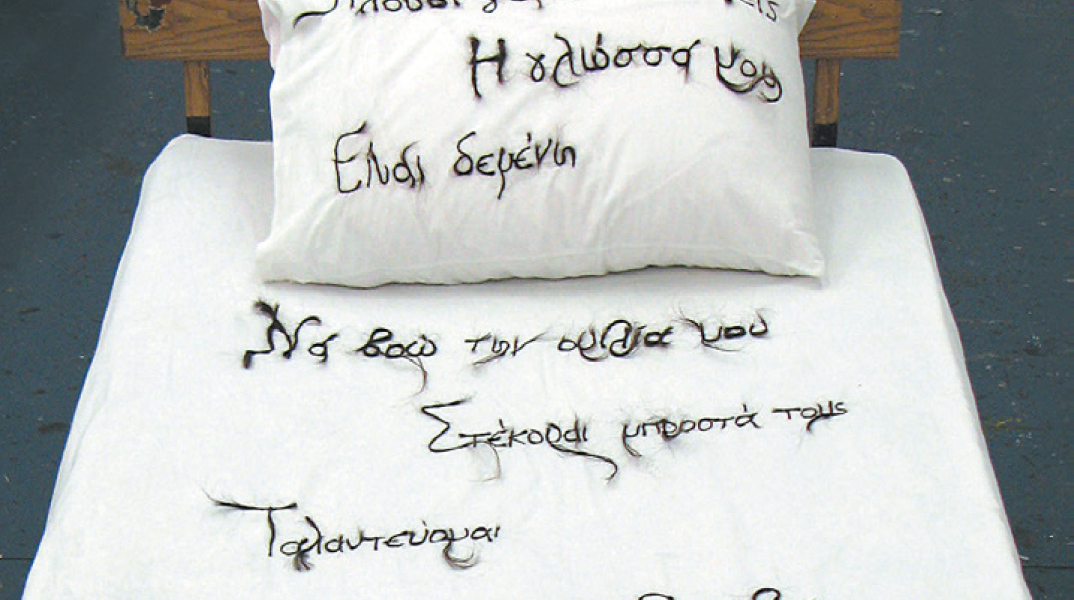 Η γλώσσα μου
Είναι δεμένη
Να βρω την ομιλία μου
Στέκομαι μπροστά τους
Ταλαντεύομαι